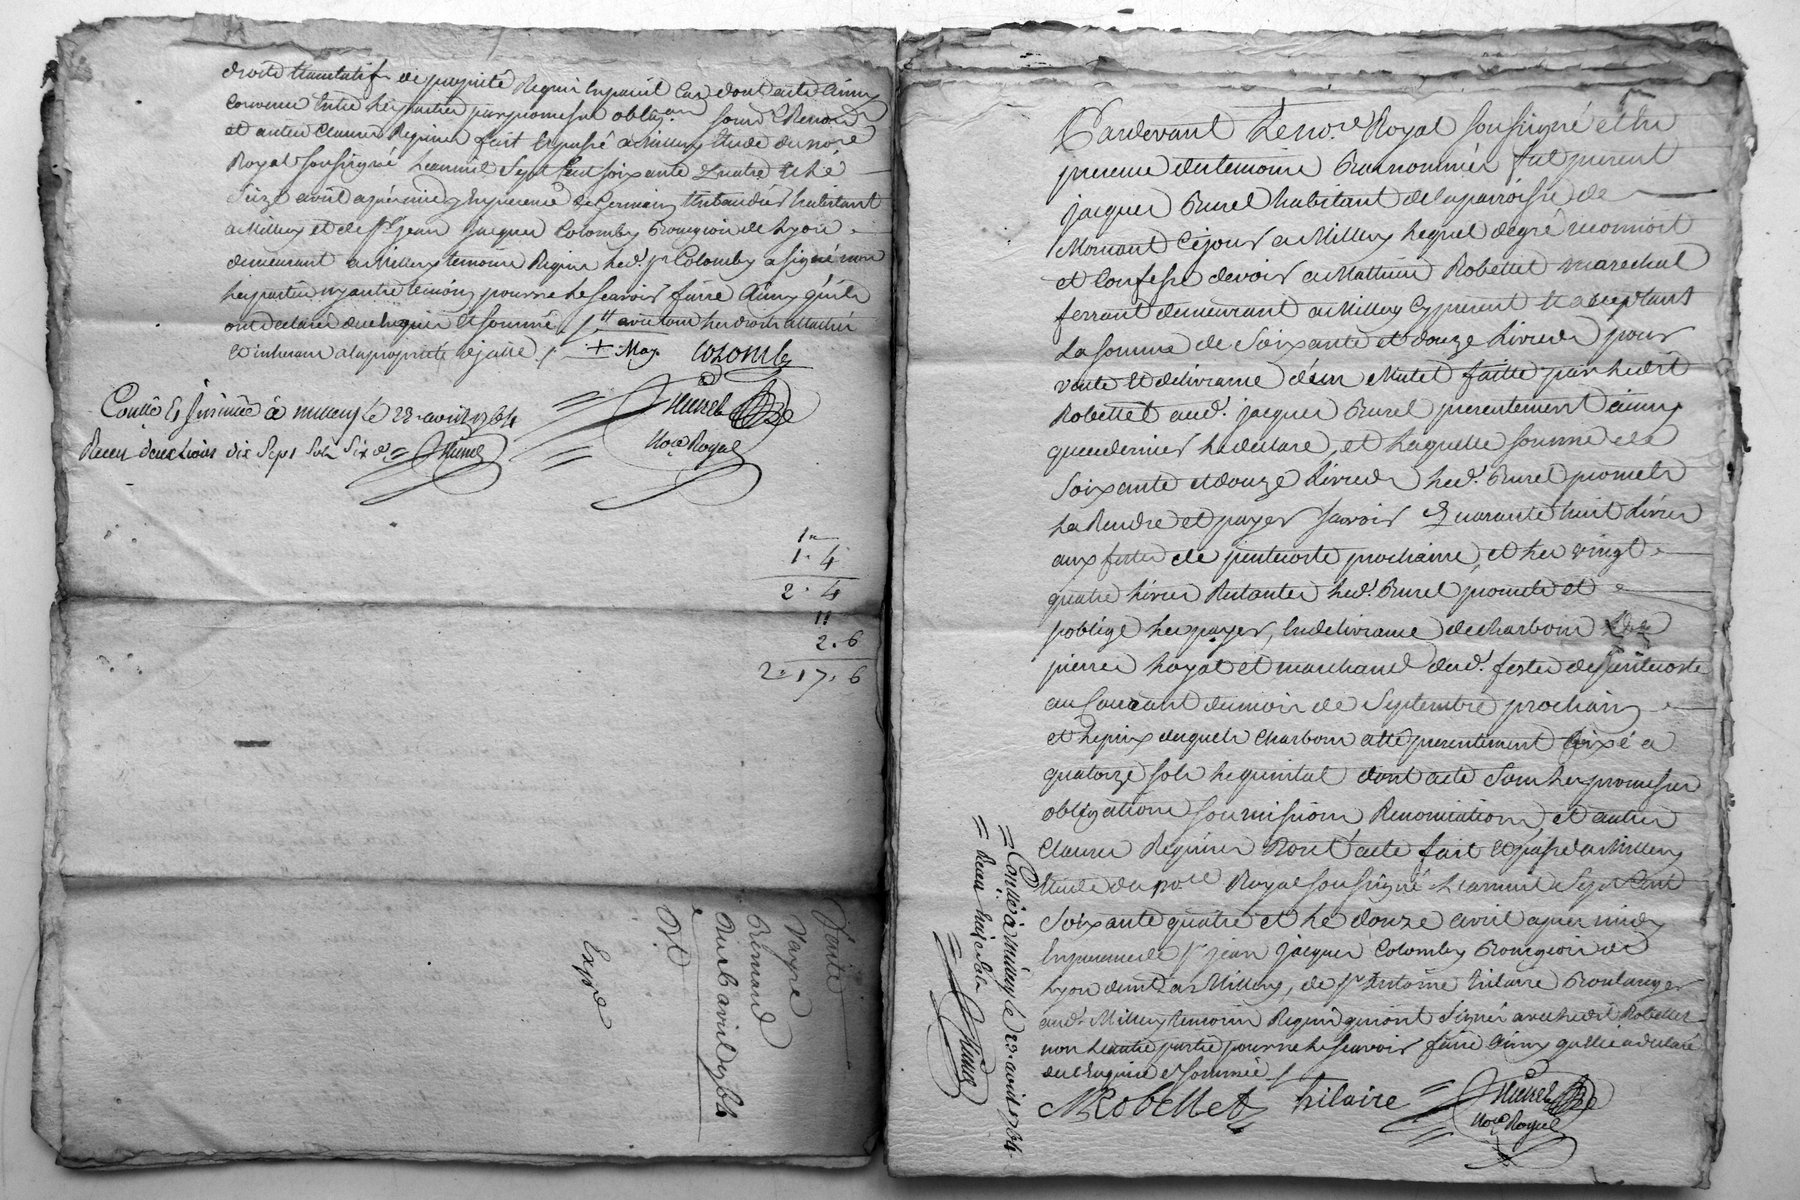 droits translatifs de propriété Requis Enpareil Cas dont acte Ainsy
Convenu Entre les parties par promesses oblig.on soum.s Renon.on
et autres Clauses Requises fait Et passé a Millery Etude du no.re
Royal soussigné Lan mil Sept Cent soixante Quatre Et le
seize avril après midy En presence de Germain Thibaudier habitant
a Millery et de s.r jean jacques Colomby Bourgeois de Lyon
demeurant a Millery temoins Requis led. s.r Colomby a signé non
les parties ny autre temoin pour ne le scavoir faire Ainsy qu'ils
ont declaré duëment Enquis Et sommé avec tous les droits attachés
Et inherans a la proprieté
+ May. Colomby
Thunel
No.re Royal
Conllé Et Insinüé à millery le 23. avril 1764
Receu deux livres dix sept sols six d.
Thunel
1"
1. 4
2. 4
11
2. 6
2. 17. 6
Vente
Vayre
Brimand
16 avril 1764
Exp.é
Pardevant Le no.re Royal soussigné et En
presence des temoins Bas nommés fut present
jacques Burel habitant de la parroisse de
Mornant Cejour a Millery lequel de gré reconnoit
et Confesse devoir a Matthieu Robellet marechal
ferrant demeurant a Millery Cy present Et acceptant
La somme de Soixante et douze Livres pour
vente Et delivrance d'un Mulet faitte par ledit
Robellet aud. jacques Burel presentement ainsy
que ce dernier le declare, et laquelle somme de
Soixante et douze Livres led. Burel promet
La Rendre et payer scavoir Quarante huit Livres
aux festes de pentecoste prochaine, et les vingt
quatre livres Restantes led. Burel promet et
s'oblige les payer, En delivrance de charbon
pierre loyal et marchand dud. festes de pentecoste
au Courant du mois de Septembre prochain
et le prix desquels charbons a été presentement fixé a
quatorze sols le quintal dont acte sous les promesses
obligations soumissions Renonciations, et autres
Clauses Requises Dont acte fait Et passé a Millery
Etude du no.re Royal soussigné Lan mil Sept Cent
Soixante quatre et le douze avril apres midy
En presence de s.r jean jacques Colomby Bourgeois de
Lyon dem.t a Millery, de s.r Antoine hilaire Boulanger
aud. Millery temoins Requis qui ont Signé avec ledit Robellet
non l'autre partie pour ne le scavoir faire Ainsy qu'elle a declaré
de ce Enquise Et sommée
M Robellet hilaire Thunel
No.re Royal
Conllé à millery le 23. avril 1764
Receu huit sols
Thunel